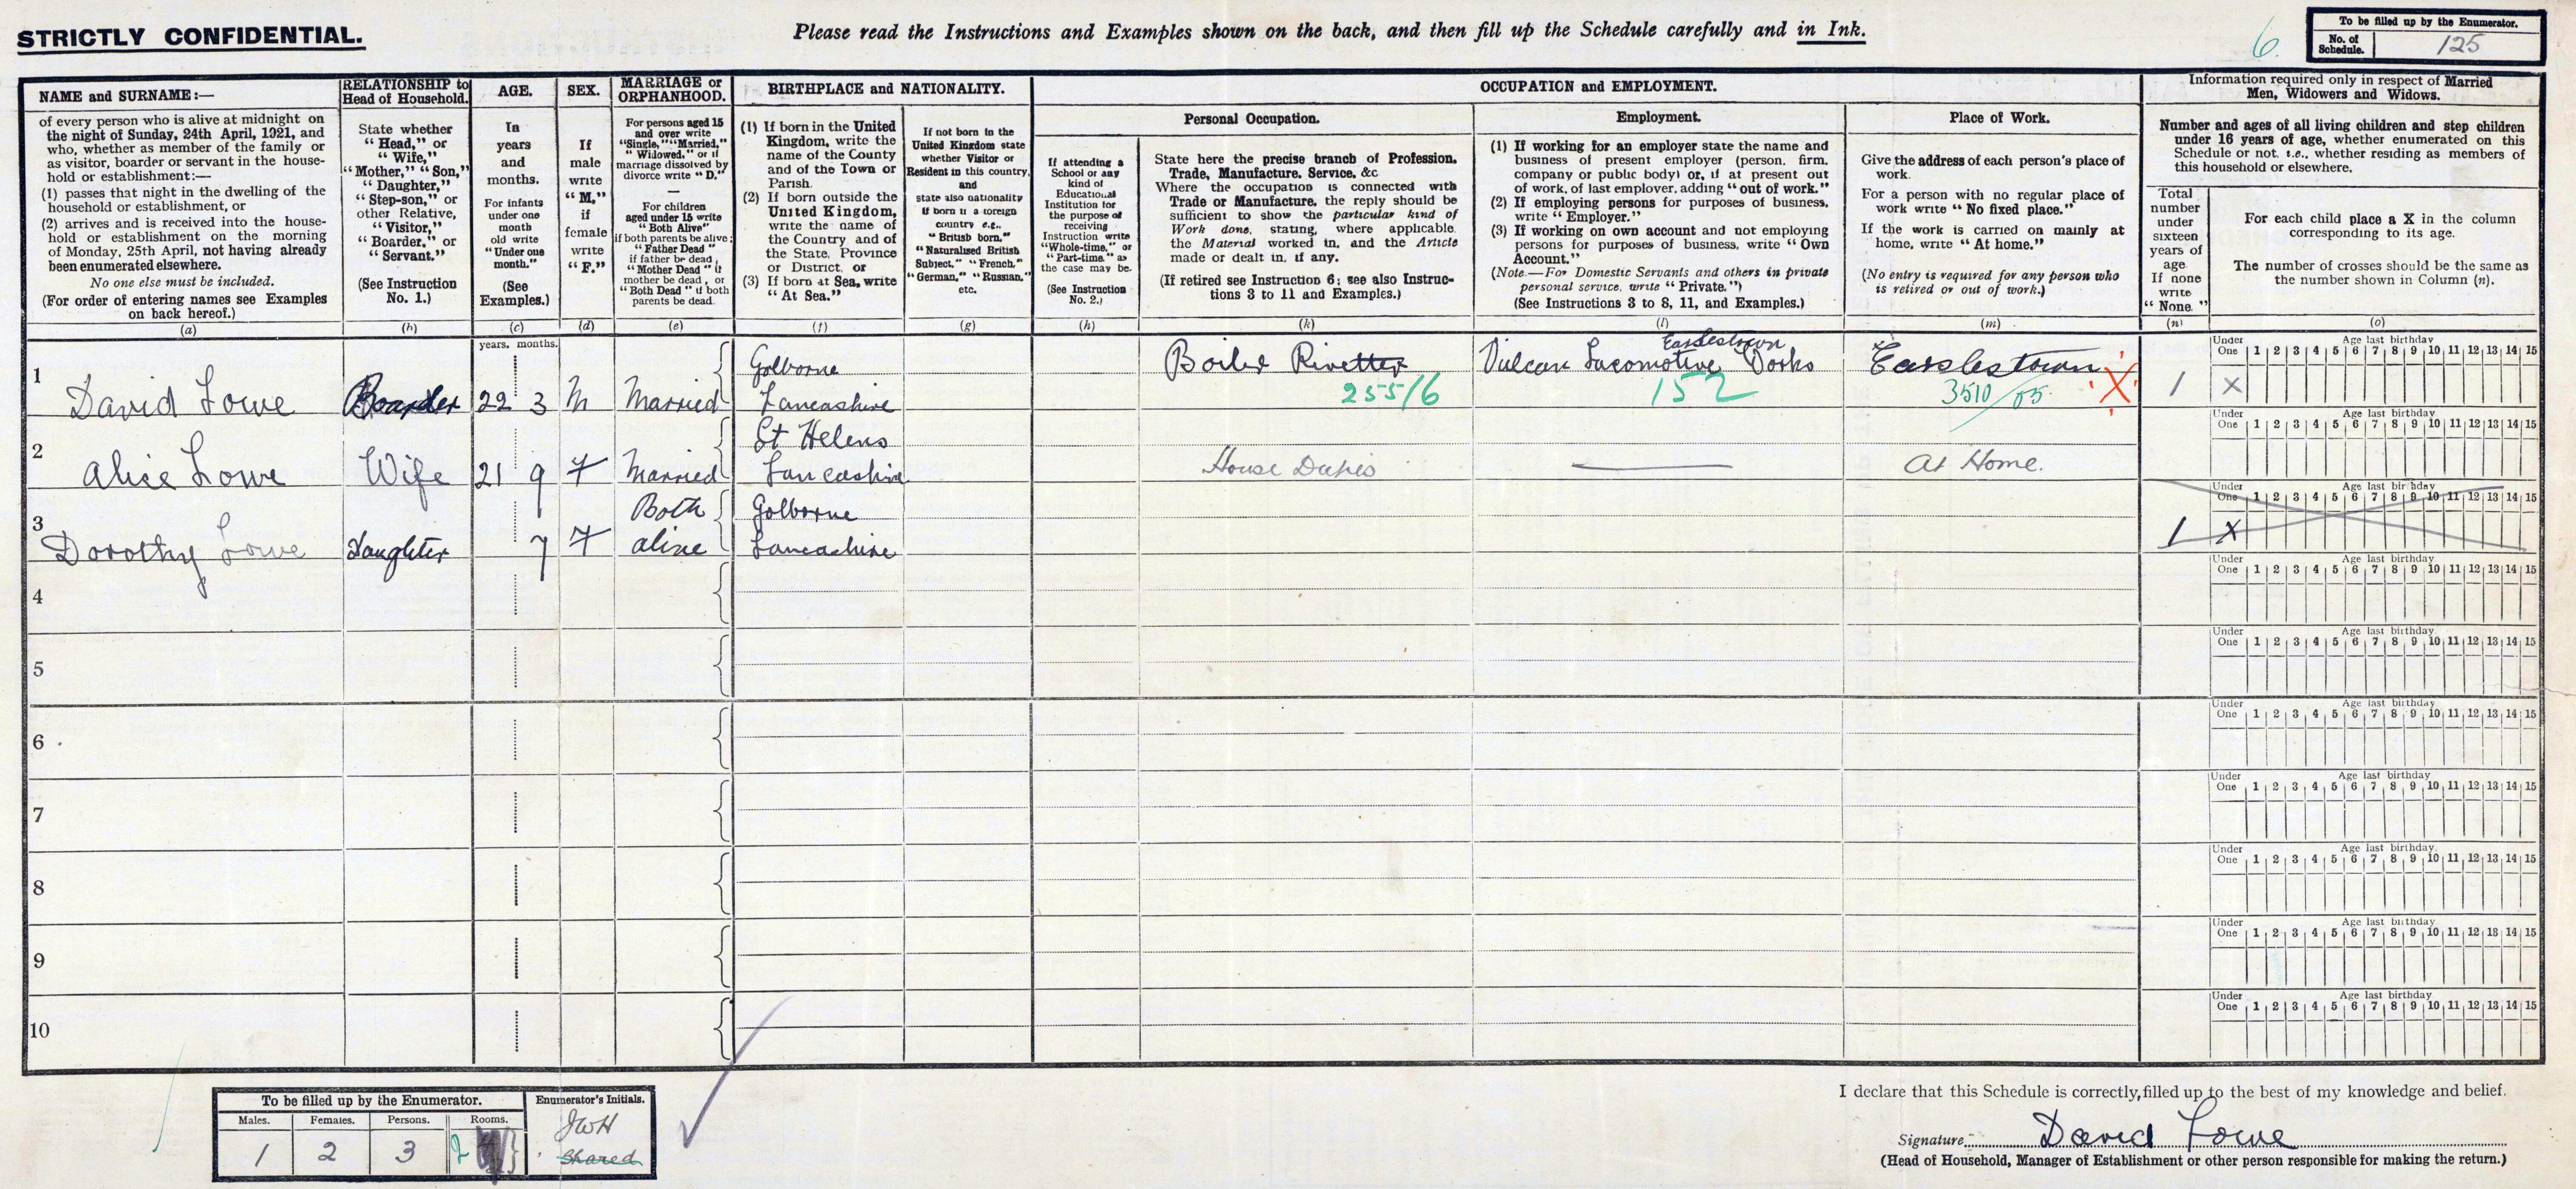 STRICTLY CONFIDENTIAL.
Please read the Instructions and Examples shown on the back, and then fill up the Schedule carefully and in Ink.
6.
To be filled up by the Enumerator.
No. of Schedule. 125
NAME and SURNAME:—
of every person who is alive at midnight on
the night of Sunday, 24th April, 1921, and
who, whether as member of the family or
as visitor, boarder or servant in the house-
hold or establishment:—
(1) passes that night in the dwelling of the
household or establishment, or
(2) arrives and is received into the house-
hold or establishment on the morning
of Monday, 25th April, not having already
been enumerated elsewhere.
No one else must be included.
(For order of entering names see Examples
on back hereof.)
(a)
RELATIONSHIP to
Head of Household.
State whether
"Head," or
"Wife,"
"Mother," "Son,"
"Daughter,"
"Step-son," or
other Relative,
"Visitor,"
"Boarder," or
"Servant."
(See Instruction
No. 1.)
(b)
AGE.
In
years
and
months.
For infants
under one
month
old write
"Under one
month."
(See
Examples.)
(c)
SEX.
If
male
write
"M,"
if
female
write
"F."
(d)
MARRIAGE or
ORPHANHOOD.
For persons aged 15
and over write
"Single," "Married,"
"Widowed," or if
marriage dissolved by
divorce write "D."
—
For children
aged under 15 write
"Both Alive"
if both parents be alive;
"Father Dead"
if father be dead,
"Mother Dead" if
mother be dead, or
"Both Dead" if both
parents be dead.
(e)
BIRTHPLACE and NATIONALITY.
(1) If born in the United
Kingdom, write the
name of the County
and of the Town or
Parish.
(2) If born outside the
United Kingdom,
write the name of
the Country and of
the State, Province
or District, or
(3) If born at Sea, write
"At Sea."
(f)
If not born in the
United Kingdom state
whether Visitor or
Resident in this country,
and
state also nationality
if born in a foreign
country e.g.,
"British born,"
"Naturalised British
Subject," "French,"
"German," "Russian,"
etc.
(g)
OCCUPATION and EMPLOYMENT.
Personal Occupation.
If attending a
School or any
kind of
Educational
Institution for
the purpose of
receiving
Instruction write
"Whole-time," or
"Part-time" as
the case may be.
(See Instruction
No. 2.)
(h)
State here the precise branch of Profession,
Trade, Manufacture, Service, &c
Where the occupation is connected with
Trade or Manufacture, the reply should be
sufficient to show the particular kind of
Work done, stating, where applicable
the Material worked in, and the Article
made or dealt in, if any.
(If retired see Instruction 6; see also Instruc-
tions 3 to 11 and Examples.)
(k)
Employment.
(1) If working for an employer state the name and
business of present employer (person, firm,
company or public body) or, if at present out
of work, of last employer, adding "out of work."
(2) If employing persons for purposes of business,
write "Employer."
(3) If working on own account and not employing
persons for purposes of business, write "Own
Account."
(Note.—For Domestic Servants and others in private
personal service, write "Private.")
(See Instructions 3 to 8, 11, and Examples.)
(l)
Place of Work.
Give the address of each person's place of
work.
For a person with no regular place of
work write "No fixed place."
If the work is carried on mainly at
home, write "At home."
(No entry is required for any person who
is retired or out of work.)
(m)
Information required only in respect of Married
Men, Widowers and Widows.
Number and ages of all living children and step children
under 16 years of age, whether enumerated on this
Schedule or not, i.e., whether residing as members of
this household or elsewhere.
Total
number
under
sixteen
years of
age
If none
write
"None."
(n)
For each child place a X in the column
corresponding to its age.
The number of crosses should be the same as
the number shown in Column (n).
(o)
years. months.
1 David Lowe Boarder 22 3 M Married Golborne Lancashire Boiler Rivetter Vulcan Locomotive Works Earlestown Earlestown 1 X
255/6 152 3510/05 X
Under One Age last birthday 1 2 3 4 5 6 7 8 9 10 11 12 13 14 15
2 Alice Lowe Wife 21 9 F Married St Helens Lancashire House Duties — At Home.
Under One Age last birthday 1 2 3 4 5 6 7 8 9 10 11 12 13 14 15
3 Dorothy Lowe Daughter 7 F Both alive Golborne Lancashire 1 X
Under One Age last birthday 1 2 3 4 5 6 7 8 9 10 11 12 13 14 15
4
Under One Age last birthday 1 2 3 4 5 6 7 8 9 10 11 12 13 14 15
5
Under One Age last birthday 1 2 3 4 5 6 7 8 9 10 11 12 13 14 15
6
Under One Age last birthday 1 2 3 4 5 6 7 8 9 10 11 12 13 14 15
7
Under One Age last birthday 1 2 3 4 5 6 7 8 9 10 11 12 13 14 15
8
Under One Age last birthday 1 2 3 4 5 6 7 8 9 10 11 12 13 14 15
9
Under One Age last birthday 1 2 3 4 5 6 7 8 9 10 11 12 13 14 15
10
Under One Age last birthday 1 2 3 4 5 6 7 8 9 10 11 12 13 14 15
To be filled up by the Enumerator.
Males. Females. Persons. Rooms.
1 2 3 2
Enumerator's Initials.
JWH
Shared
I declare that this Schedule is correctly filled up to the best of my knowledge and belief.
Signature David Lowe
(Head of Household, Manager of Establishment or other person responsible for making the return.)